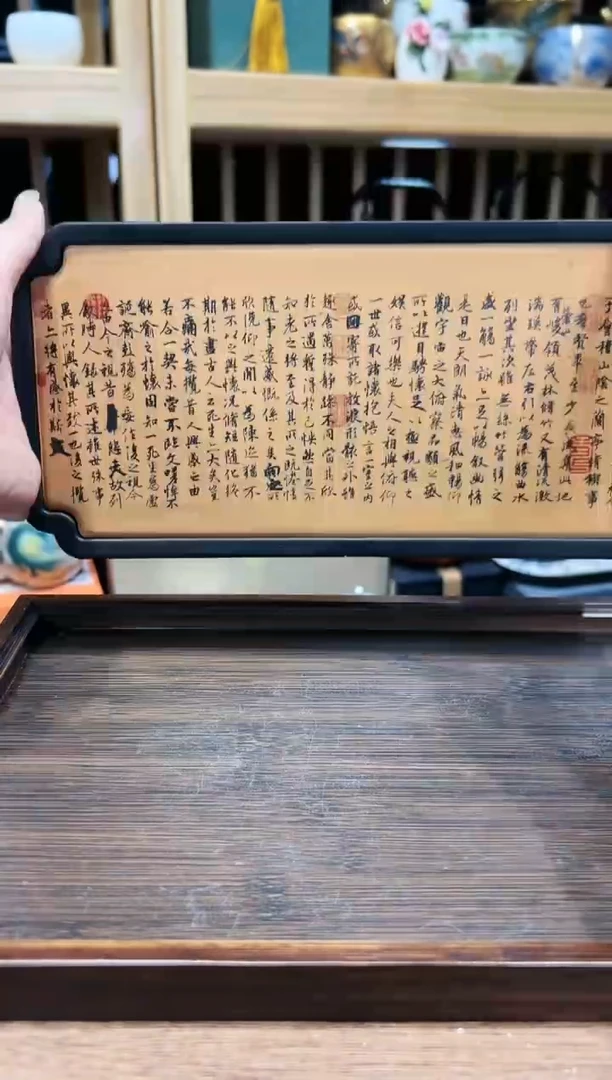 于會稽山陰之蘭亭脩稧事
也群賢畢至少長咸集此地
有崇山峻領茂林脩竹又有清流激
湍暎帶左右引以為流觴曲水
列坐其次雖無絲竹管弦之
盛一觴一詠亦足以暢敘幽情
是日也天朗氣清惠風和暢仰
觀宇宙之大俯察品類之盛
所以遊目騁懷足以極視聽之
娛信可樂也夫人之相與俯仰
一世或取諸懷抱悟言一室之內
或因寄所託放浪形骸之外雖
趣舍萬殊靜躁不同當其欣
於所遇蹔得於己怏然自足不
知老之將至及其所之既惓情
隨事遷感慨係之矣向之所
欣俛仰之閒以為陳迹猶不
能不以之興懷況脩短隨化終
期於盡古人云死生亦大矣豈
不痛哉每攬昔人興感之由
若合一契未嘗不臨文嗟悼不
能喻之於懷固知一死生為虛
誕齊彭殤為妄作後之視今
亦由今之視昔悲夫故列
敘時人錄其所述雖世殊事
異所以興懷其致一也後之攬
者亦將有感於斯文